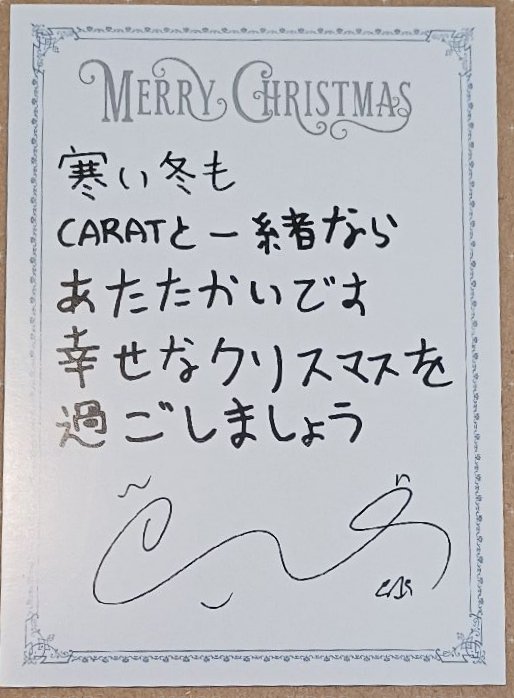 MERRY CHRISTMAS
寒い冬も
CARATと一緒なら
あたたかいです
幸せなクリスマスを
過ごしましょう